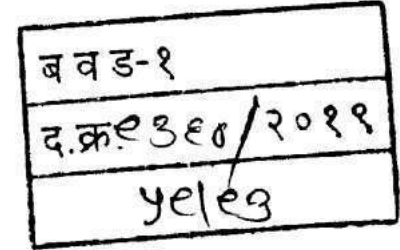 ब व ड-१
द.क्र.९३६०/२०१९
५९/९३